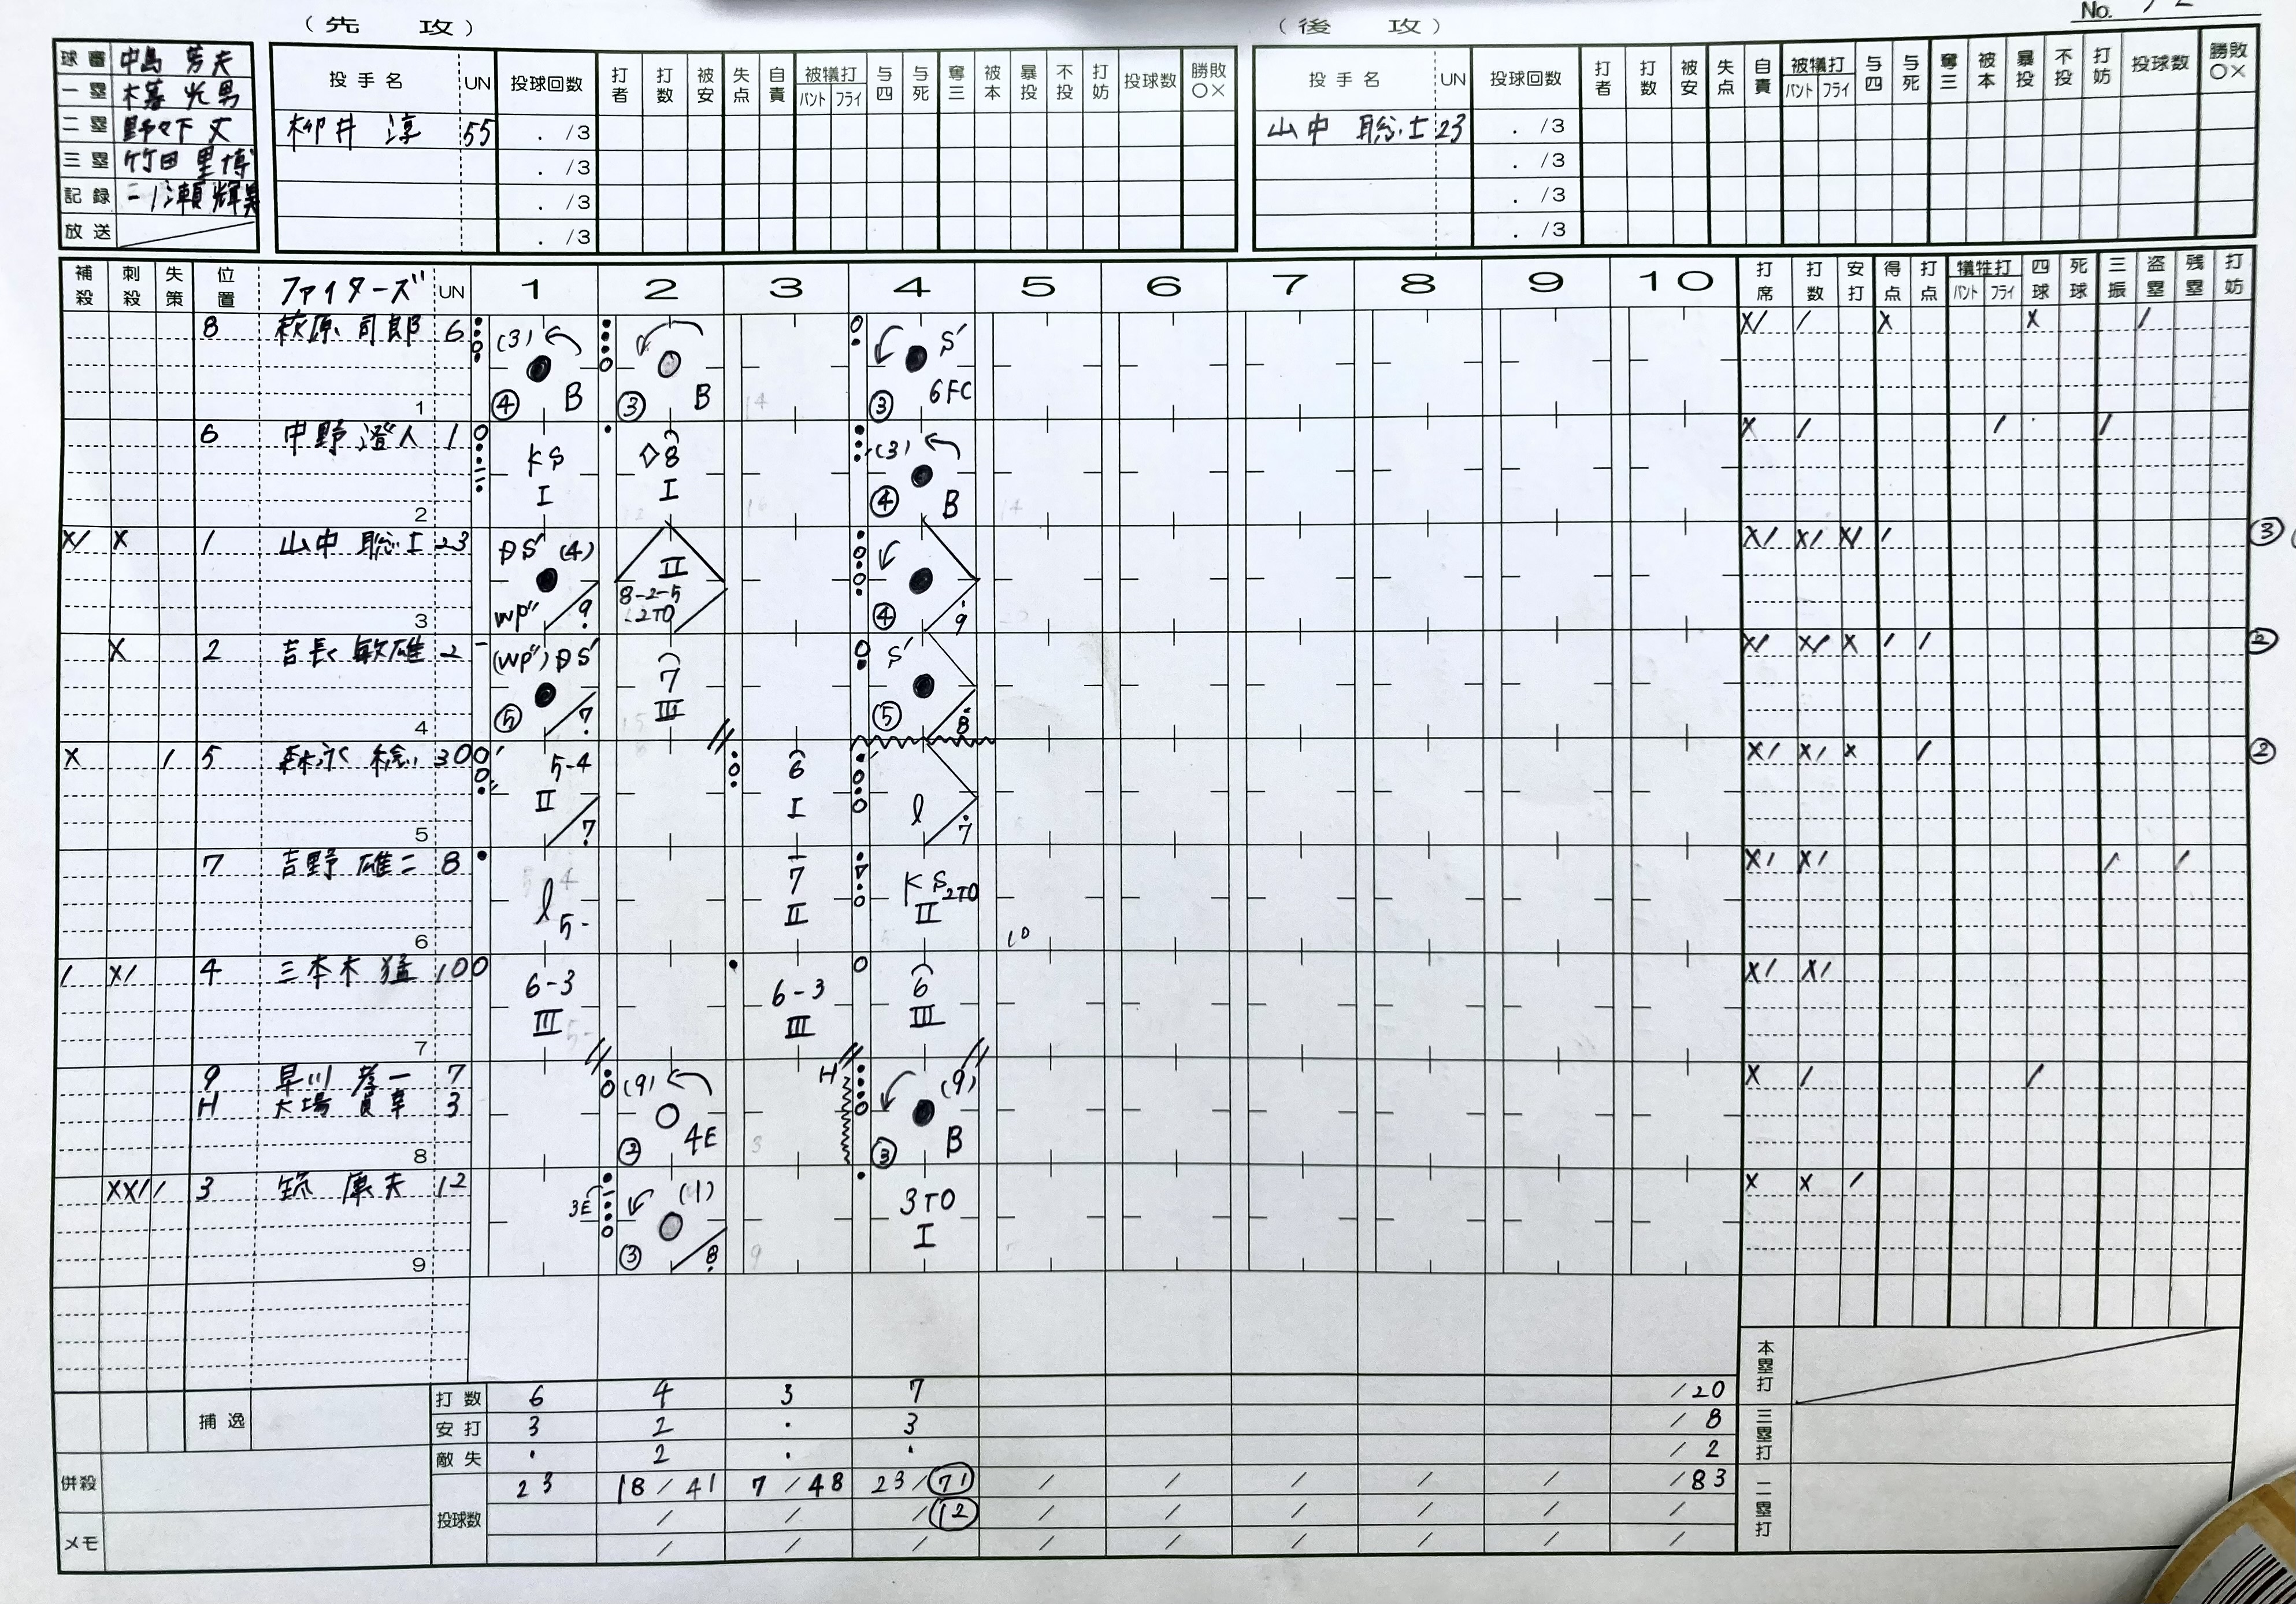 （先　攻）
（後　攻）
No.
球審 中島 芳夫
一塁 木暮 光男
二塁 野々下 丈
三塁 竹田 里博
記録 二ノ瀬 輝美
放送
投手名 UN 投球回数 打者 打数 被安 失点 自責 被犠打 バント フライ 与四 与死 奪三 被本 暴投 不投 打妨 投球数 勝敗 ○×
柳井 淳 55 . /3
. /3
. /3
. /3
投手名 UN 投球回数 打者 打数 被安 失点 自責 被犠打 バント フライ 与四 与死 奪三 被本 暴投 不投 打妨 投球数 勝敗 ○×
山中 聡士 23 . /3
. /3
. /3
. /3
補殺 刺殺 失策 位置 ファイターズ UN 1 2 3 4 5 6 7 8 9 10 打席 打数 安打 得点 打点 犠牲打 バント フライ 四球 死球 三振 盗塁 残塁 打妨
8 萩原 司郎 6
(3) ④ B
③ B
S' ③ 6FC
1
6 中野 澄人 1
KS I
◇8 I
(3) ④ B
2
1 山中 聡士 23
DS' (4) WP" 9
II 8-2-5 2TO
④ 9
③
3
2 吉長 敏雄 2
(WP") DS' ⑤ 7
7 III
S' ⑤ 8
②
4
5 森永 稔 30
5-4 II 7
6 I
l 7
②
5
7 吉野 雄二 8
l 5-
7 II
KS 2TO II
10
6
4 三本木 猛 10
6-3 III
6-3 III
6 III
7
9 早川 孝一 7
H 大場 良幸 3
(9) ② 4E
H
(9) ③ B
8
3 筑 康夫 12
3E (1) ③ 8
3TO I
9
打数 6 4 3 7 /20
安打 3 2 · 3 / 8
敵失 · 2 · · / 2
投球数 23 18/41 7/48 23/71 / / / / / /83
/ / /12
/ / /
捕逸
併殺
メモ
本塁打
三塁打
二塁打